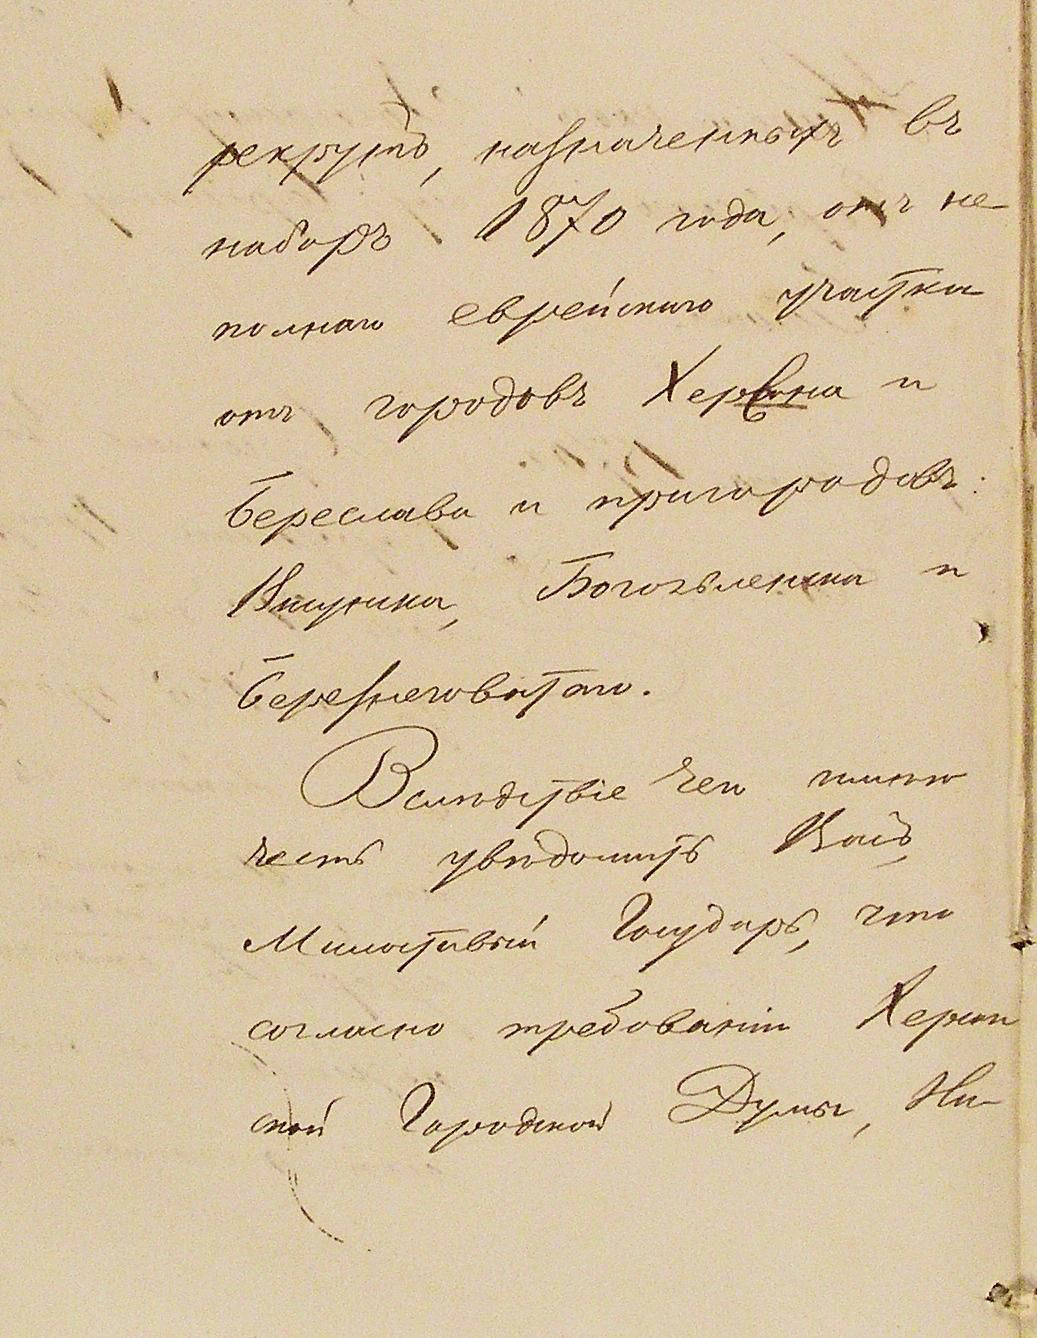 рекрутъ, назначенныхъ въ
наборъ 1870 года, отъ не-
полнаго еврейскаго участка
отъ городовъ Херсона и
Береслава и пригородовъ:
Витунска, Богоявленска и
Березнеговатаго.
Вслѣдствіе чего имѣю
честь увѣдомить Васъ,
Милостивый Государь, что
согласно требованію Херсон
ской Городской Думы, Ни-